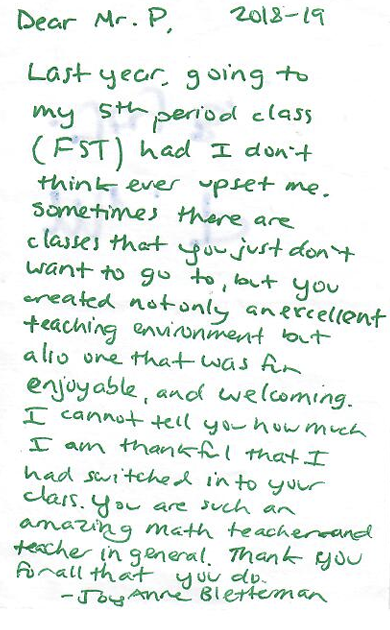 Dear Mr. P, 2018-19
Last year, going to
my 5th period class
(FST) had I don't
think ever upset me.
Sometimes there are
classes that you just don't
want to go to, but you
created not only an excellent
teaching environment but
also one that was fun
enjoyable, and welcoming.
I cannot tell you how much
I am thankful that I
had switched in to your
class. You are such an
amazing math teacher and
teacher in general. Thank you
for all that you do.
-Joy Anne Bletterman